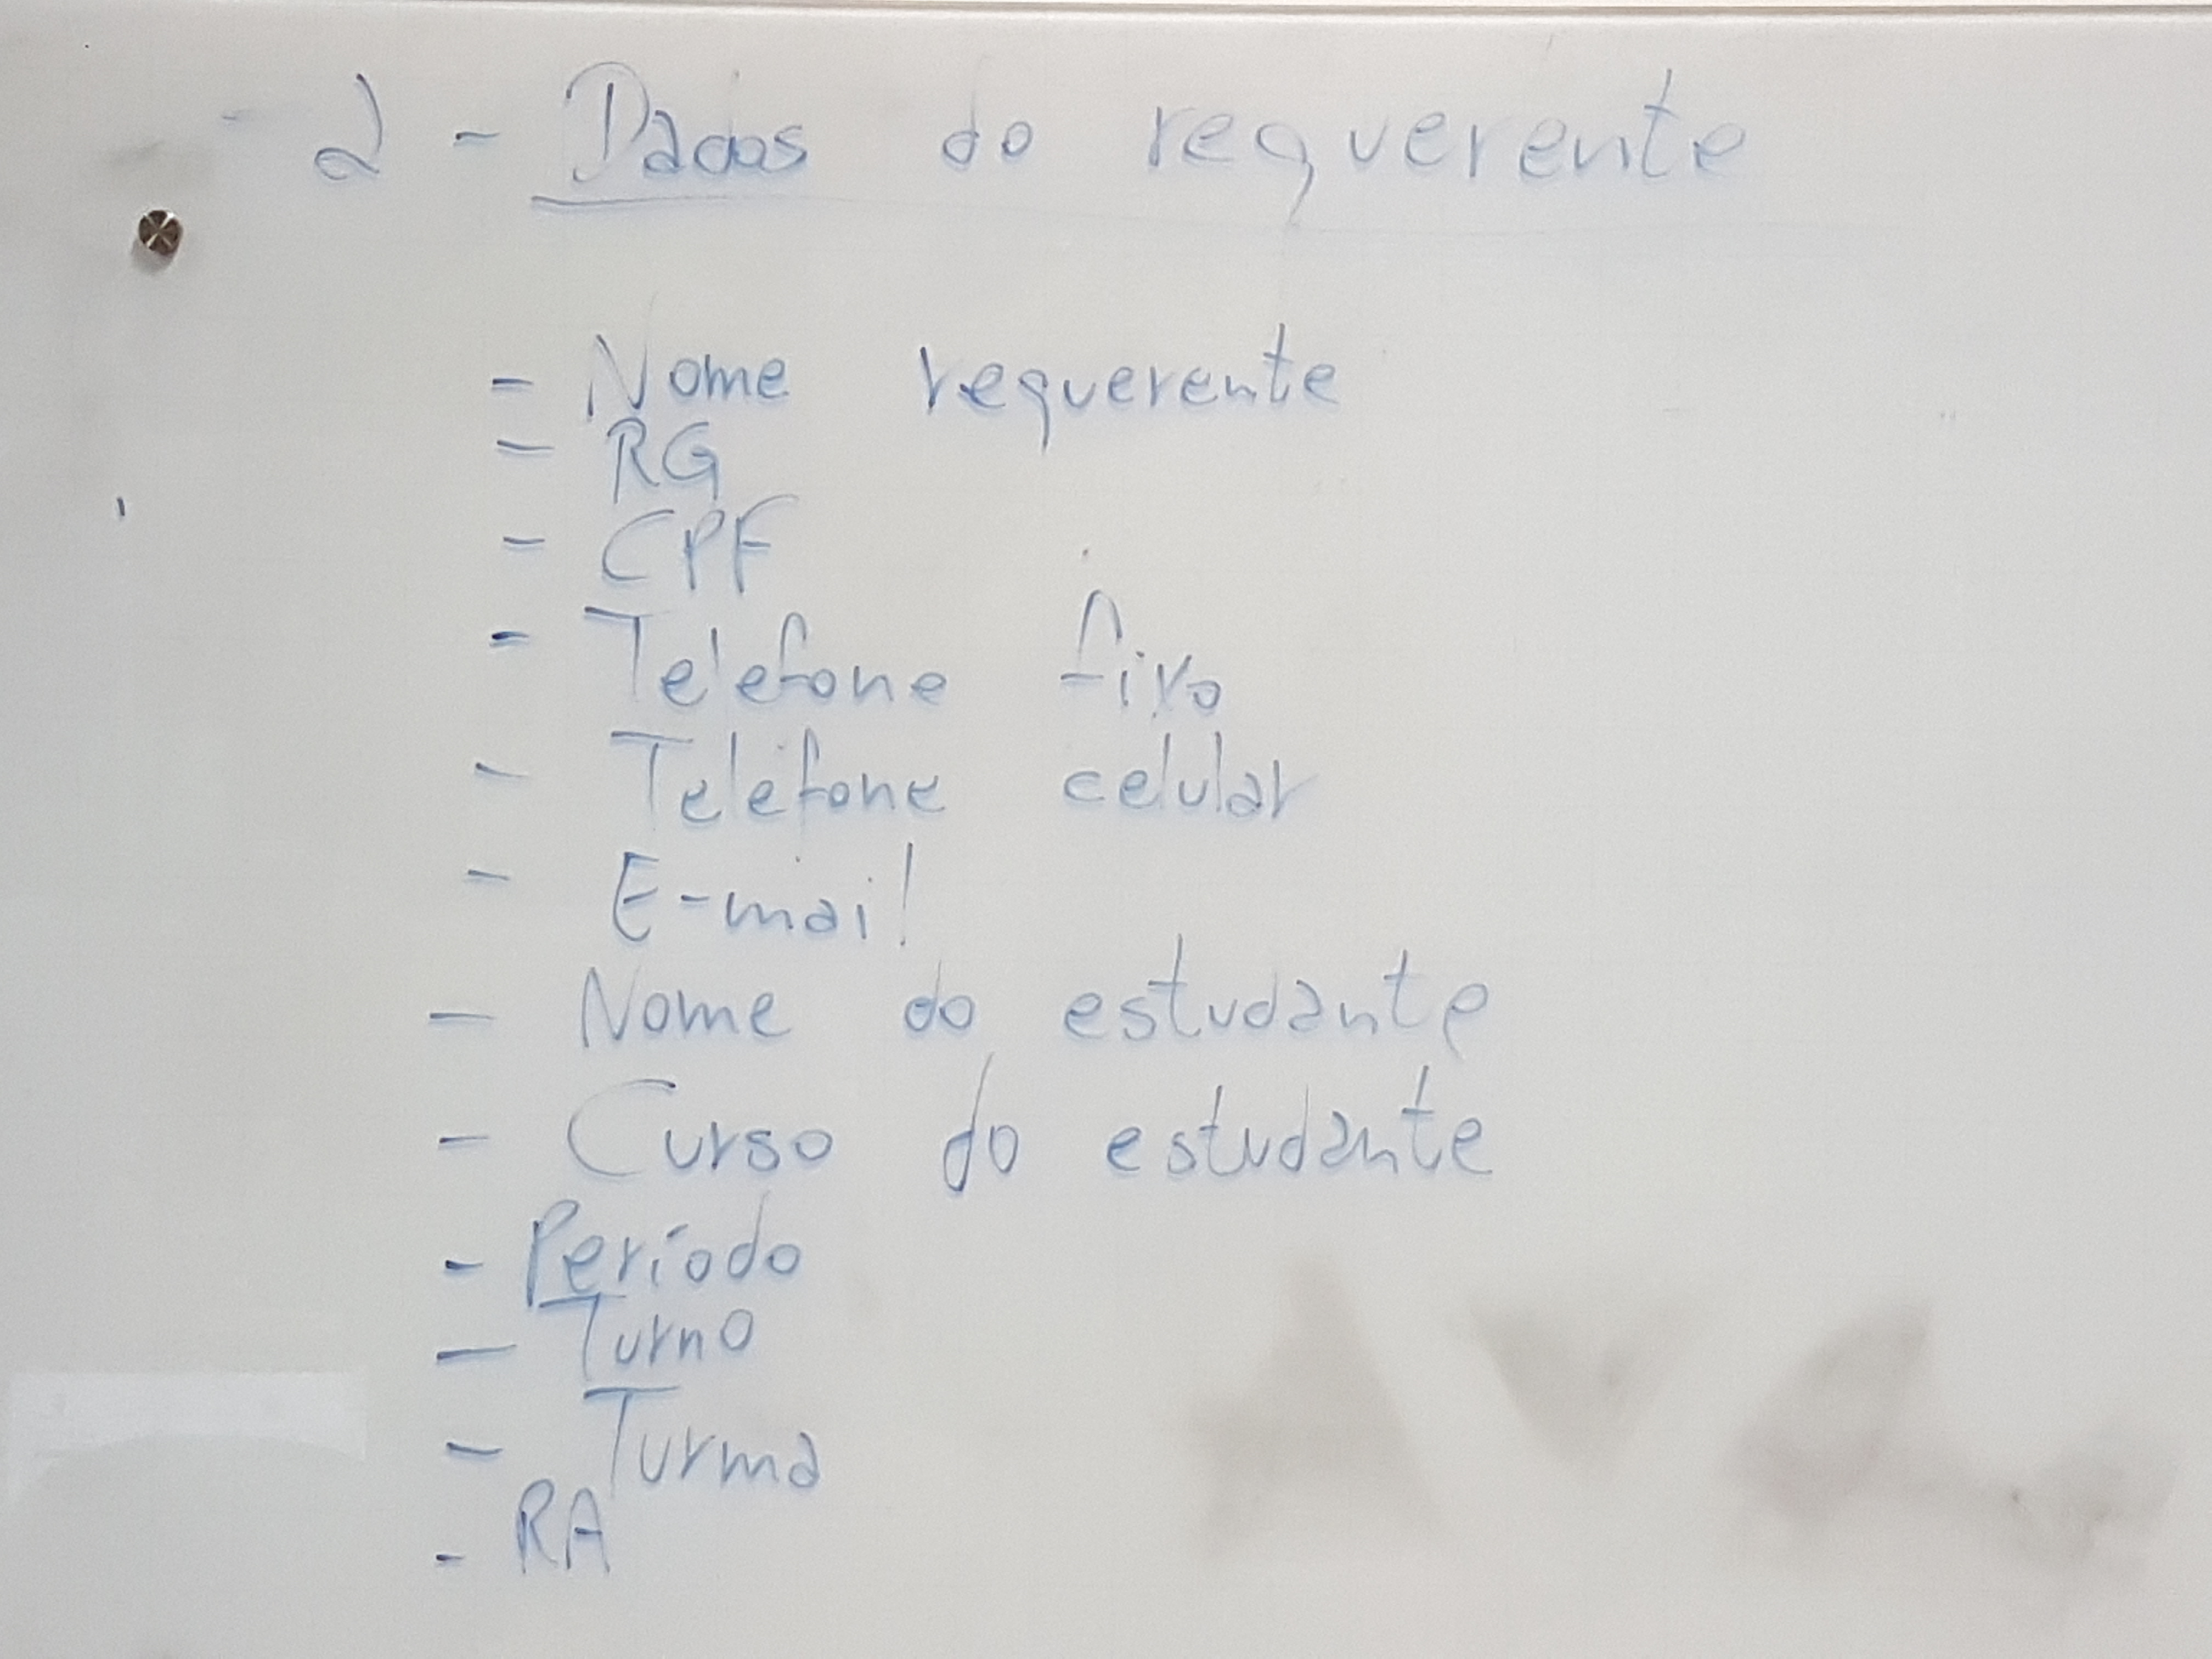 - 2 - Dados do requerente
- Nome requerente
- RG
- CPF
- Telefone fixo
- Telefone celular
- E-mail
- Nome do estudante
- Curso do estudante
- Período
- Turno
- Turma
- RA